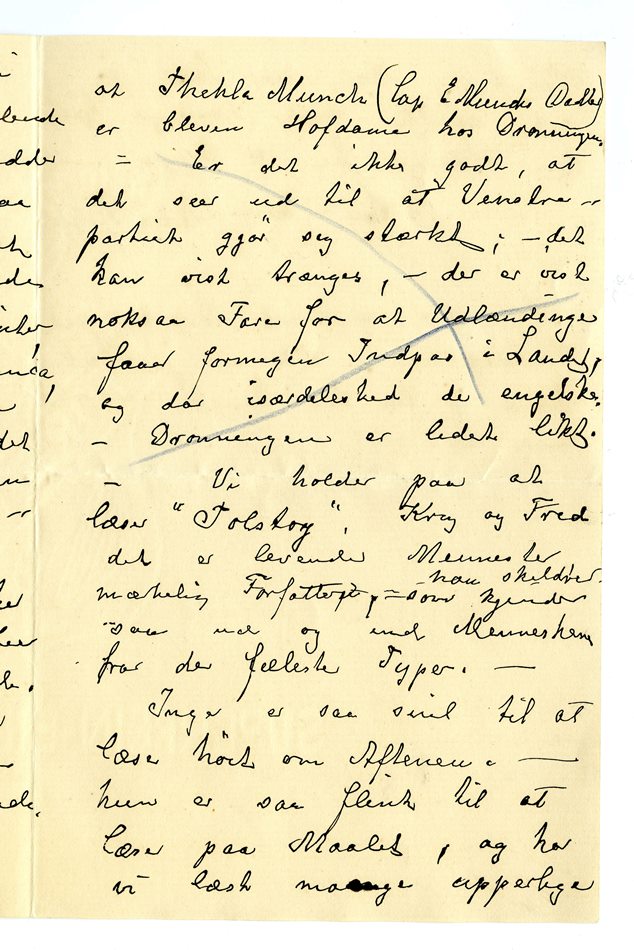 at Thekla Munch (Cap E Munchs Datter)
er bleven Hofdame hos Dronningen.
= Er det ikke godt, at
det seer ud til at Venstre-
partiet gjør seg stærkt; - det
kan vist trænges, - der er vist
noksaa Fare for at Udlændinge
faaer formegen Indpas i Landet,
og da isærdeleshed de engelske.
- Dronningen er ledet likt.
- Vi holder paa at
læse "Tolstoy", Krig og Fred
det er levende Mennesker
mærkelig Forfatter, = han skildrer
som kjender
saa ud og ind Menneskene
fra de fæleste Typer. -
Inga er saa snil til at
læse høit om Aftenen. -
hun er saa flink til at
læse paa Maalet, og har
vi læst mange upperlige